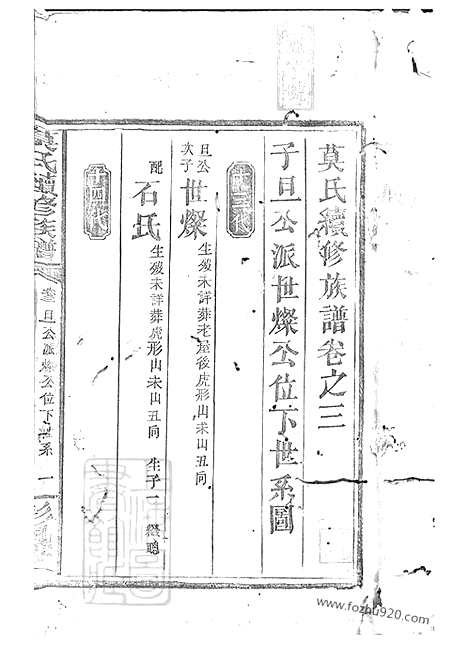 莫氏續修族譜卷之三
子旦公派世燦公位下世系圖
十三世
旦公次子 世燦 生殁未詳葬老屋後虎形山未山丑向
配 石氏 生殁未詳葬虎形山未山丑向 生子一 懋聰
十四世
莫氏續修族譜
旦公派燦公位下世系 一
www.fozhu920.com